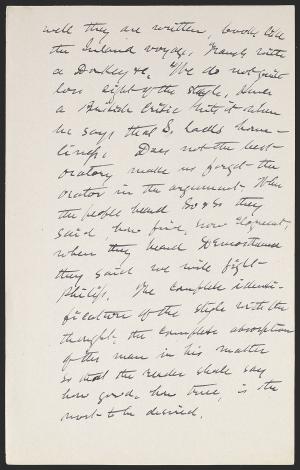 well they are written, books like
the Inland voyage, Travels with
a Donkey &c. We do not quite
lose sight of the style, Hence
a British Critic hits it when
he says that S. lacks home-
liness. Does not the best
oratory make us forget the
orator in the argument. When
the people heard So & So they
said, how fine, how eloquent,
when they heard Demosthenes
they said we will fight
Philip. The complete identi-
fication of the style with the
thought, the complete absorption
of the man in his matter
so that the reader shall say
how good, how true, is the
most to be desired.